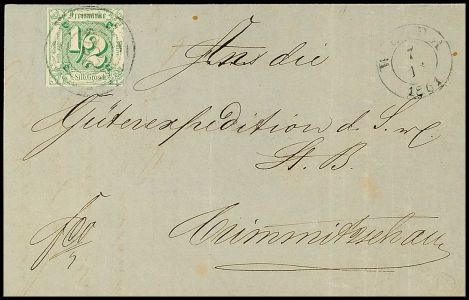 Freimarke
1/2
Silb. Grosch.
7
1
1861
An die
Güterexpedition d. S. w.
St. B.
Crimmitzschau